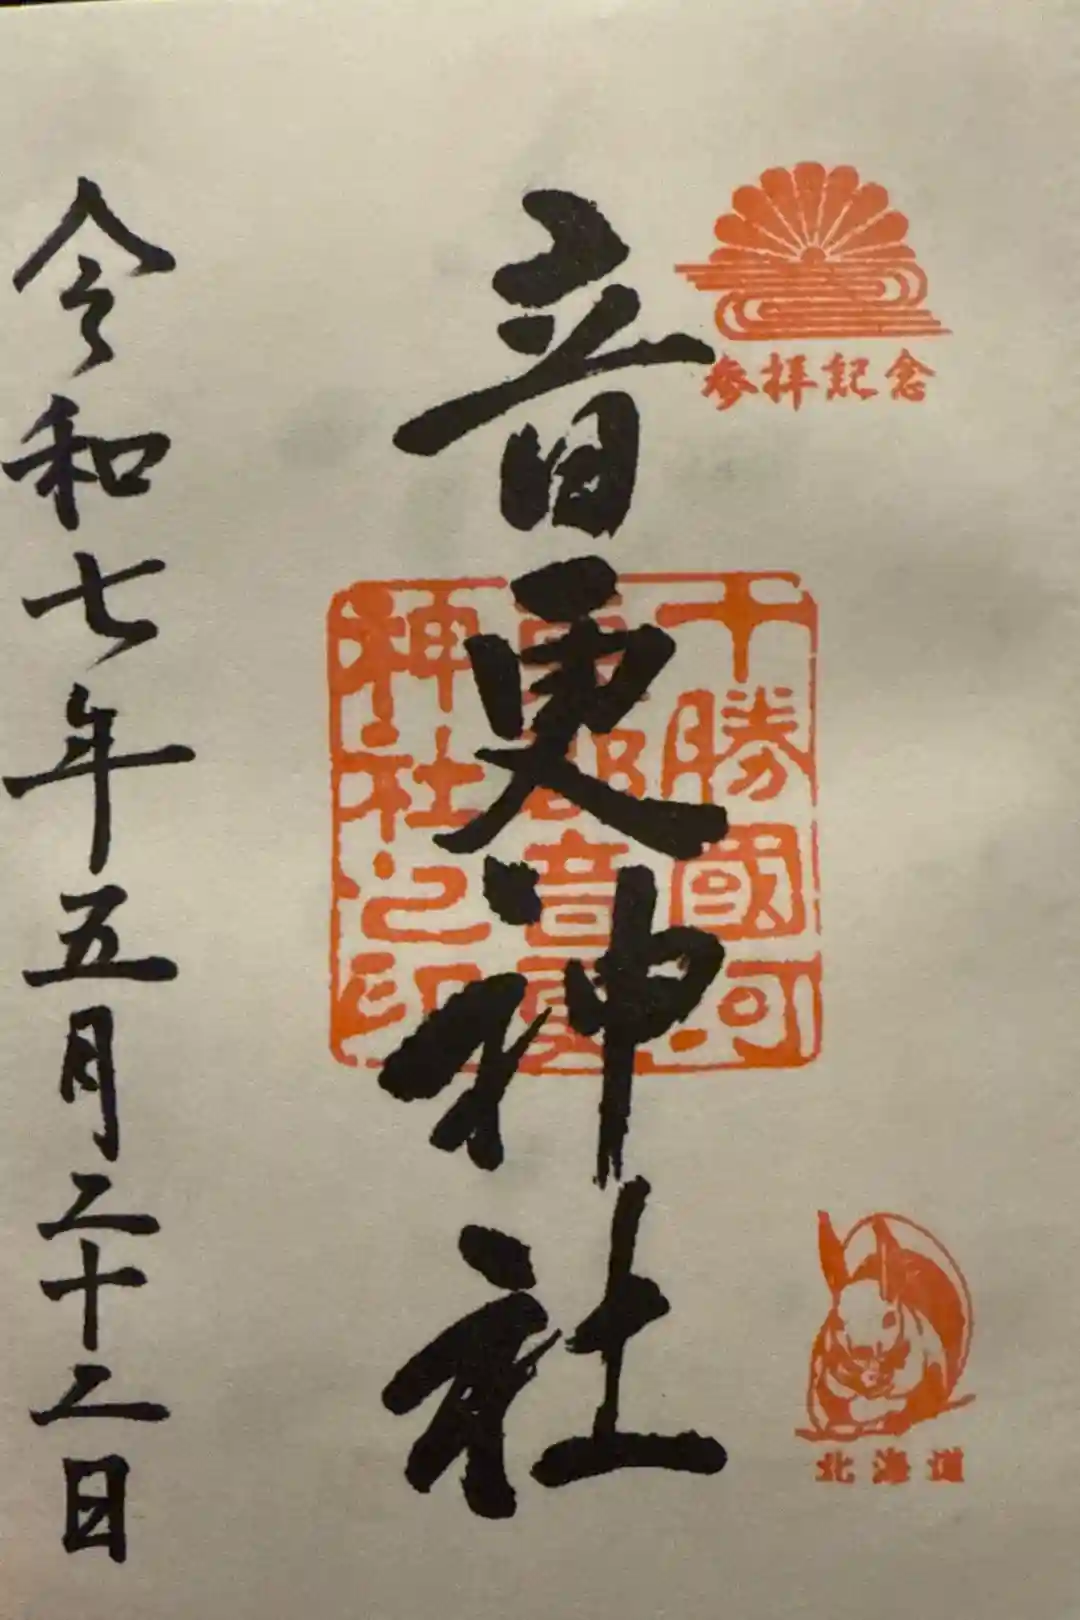 参拝記念
十勝國河
東郡音更
神社之印
音更神社
北海道
令和七年五月二十二日